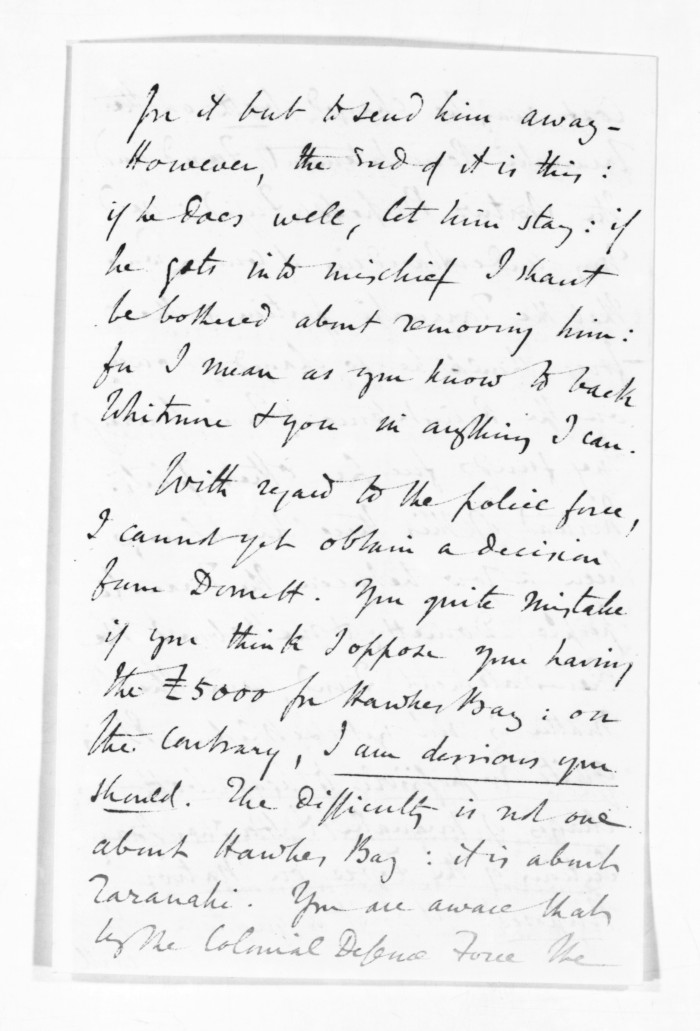 for it but to send him away –
However, the End of it is this :
if he does well, let him stay : if
he gets into mischief I shan't
be bothered about removing him :
for I mean as you know to back
Whitmore & you in anything I can.
With regard to the police force,
I cannot yet obtain a decision
from Domett. You quite mistake
if you think I oppose your having
the £5000 for Hawkes Bay : on
the contrary, I am desirous you
should. The difficulty is not one
about Hawkes Bay : it is about
Taranaki. You are aware that
by the Colonial Defence Force the